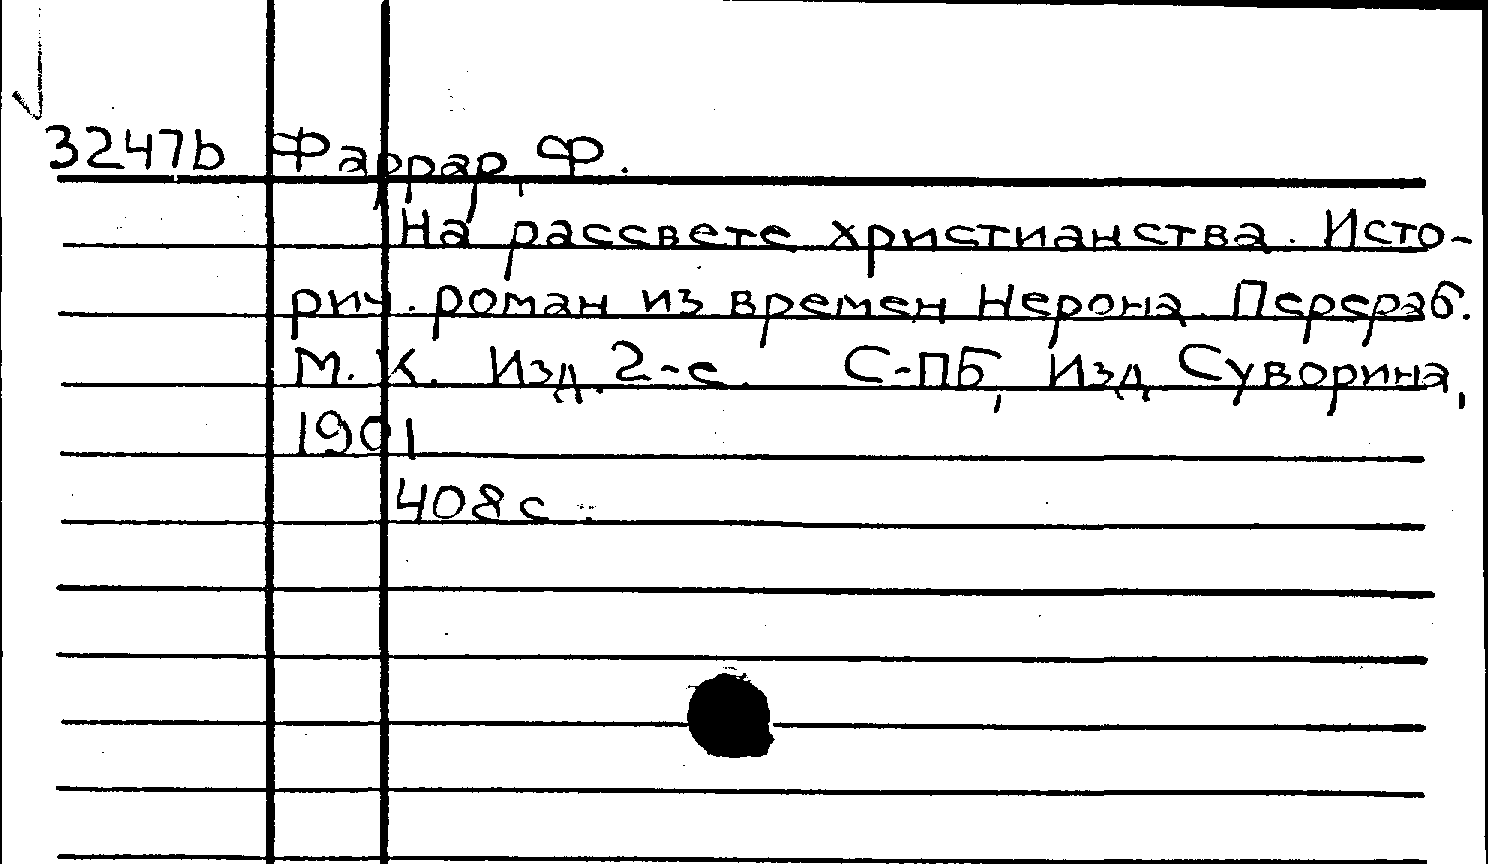 3247b Фаррар, Ф.
На рассвете христианства. Исто-
рич. роман из времен Нерона. Перераб.
М. К. Изд. 2-е. С-ПБ, Изд Суворина,
1901
408 с.